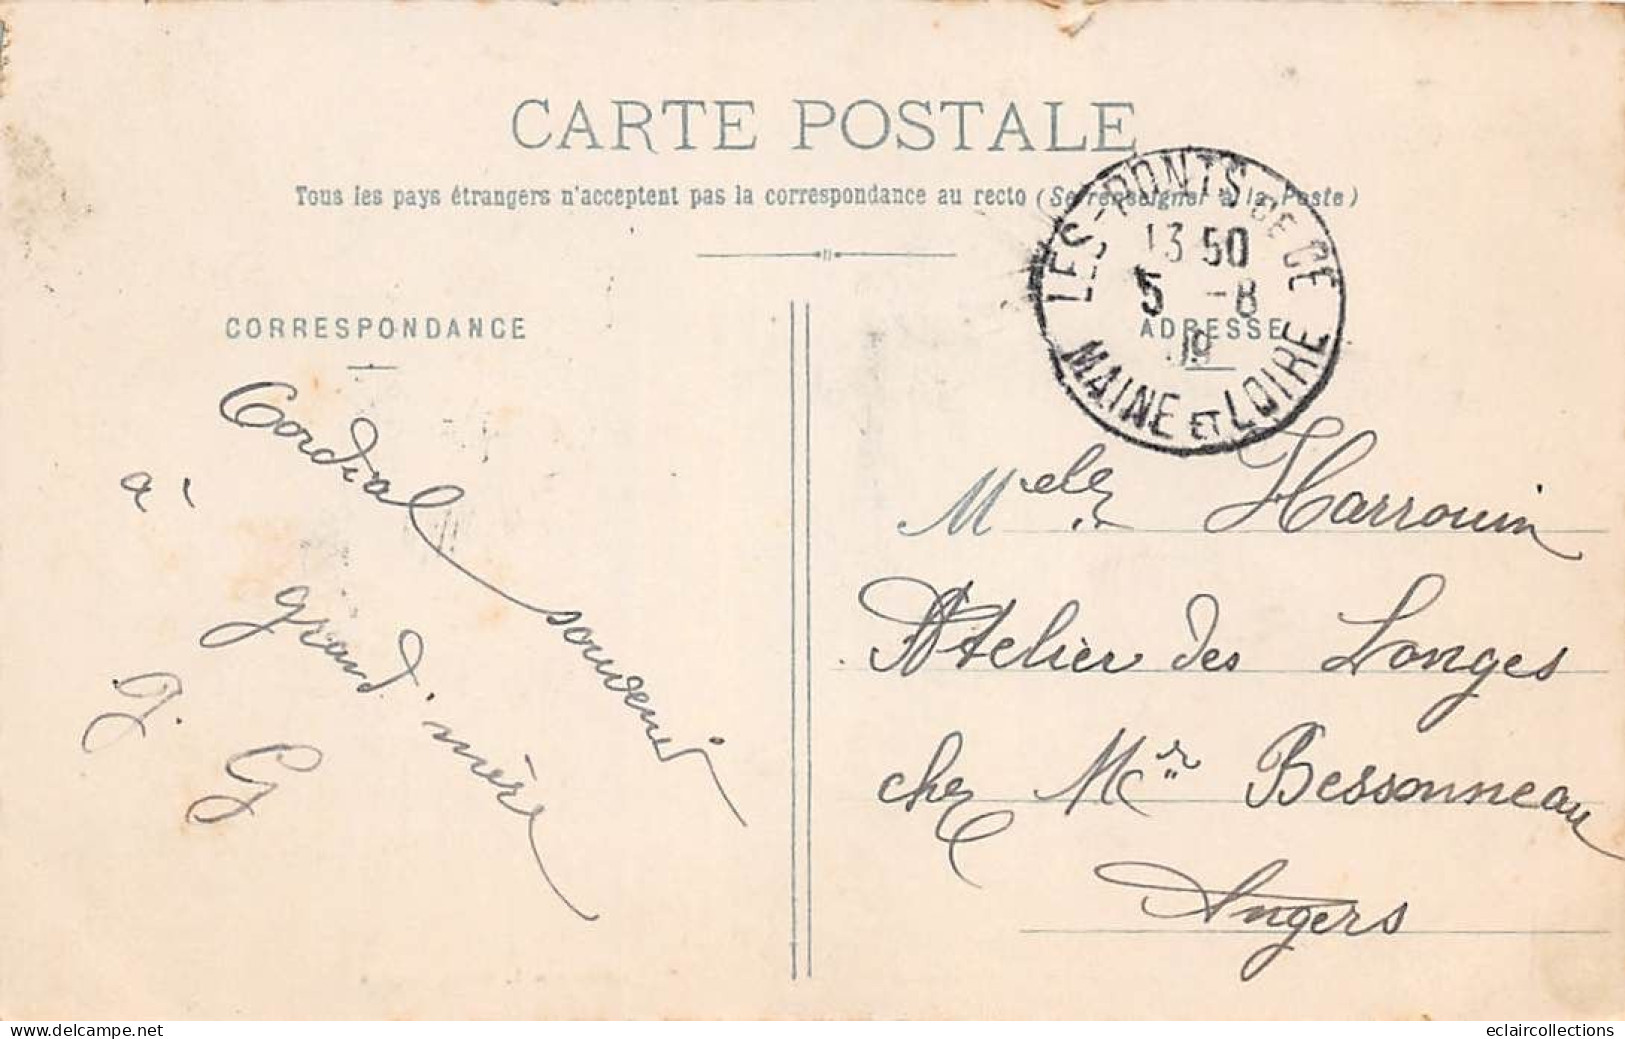 CARTE POSTALE
Tous les pays étrangers n'acceptent pas la correspondance au recto (Se renseigner à la Poste)
LES-PONTS DE CE
13 50
5 -8
19
MAINE ET LOIRE
CORRESPONDANCE
Cordial souvenir
a
grand'mère
G. G
ADRESSE
Melle Harrouin
Atelier des Longes
chez Mr Bessonneau
Angers
www.delcampe.net
eclaircollections